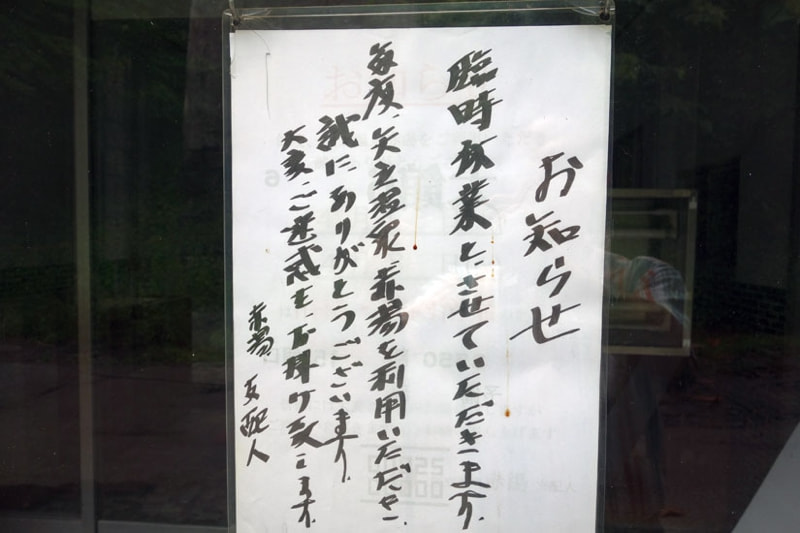 お知らせ
臨時休業とさせていただきます。
毎度、矢立温泉、赤湯を利用いただき、
誠にありがとうございます。
大変、ご迷惑を、お掛け致します。
赤湯 支配人